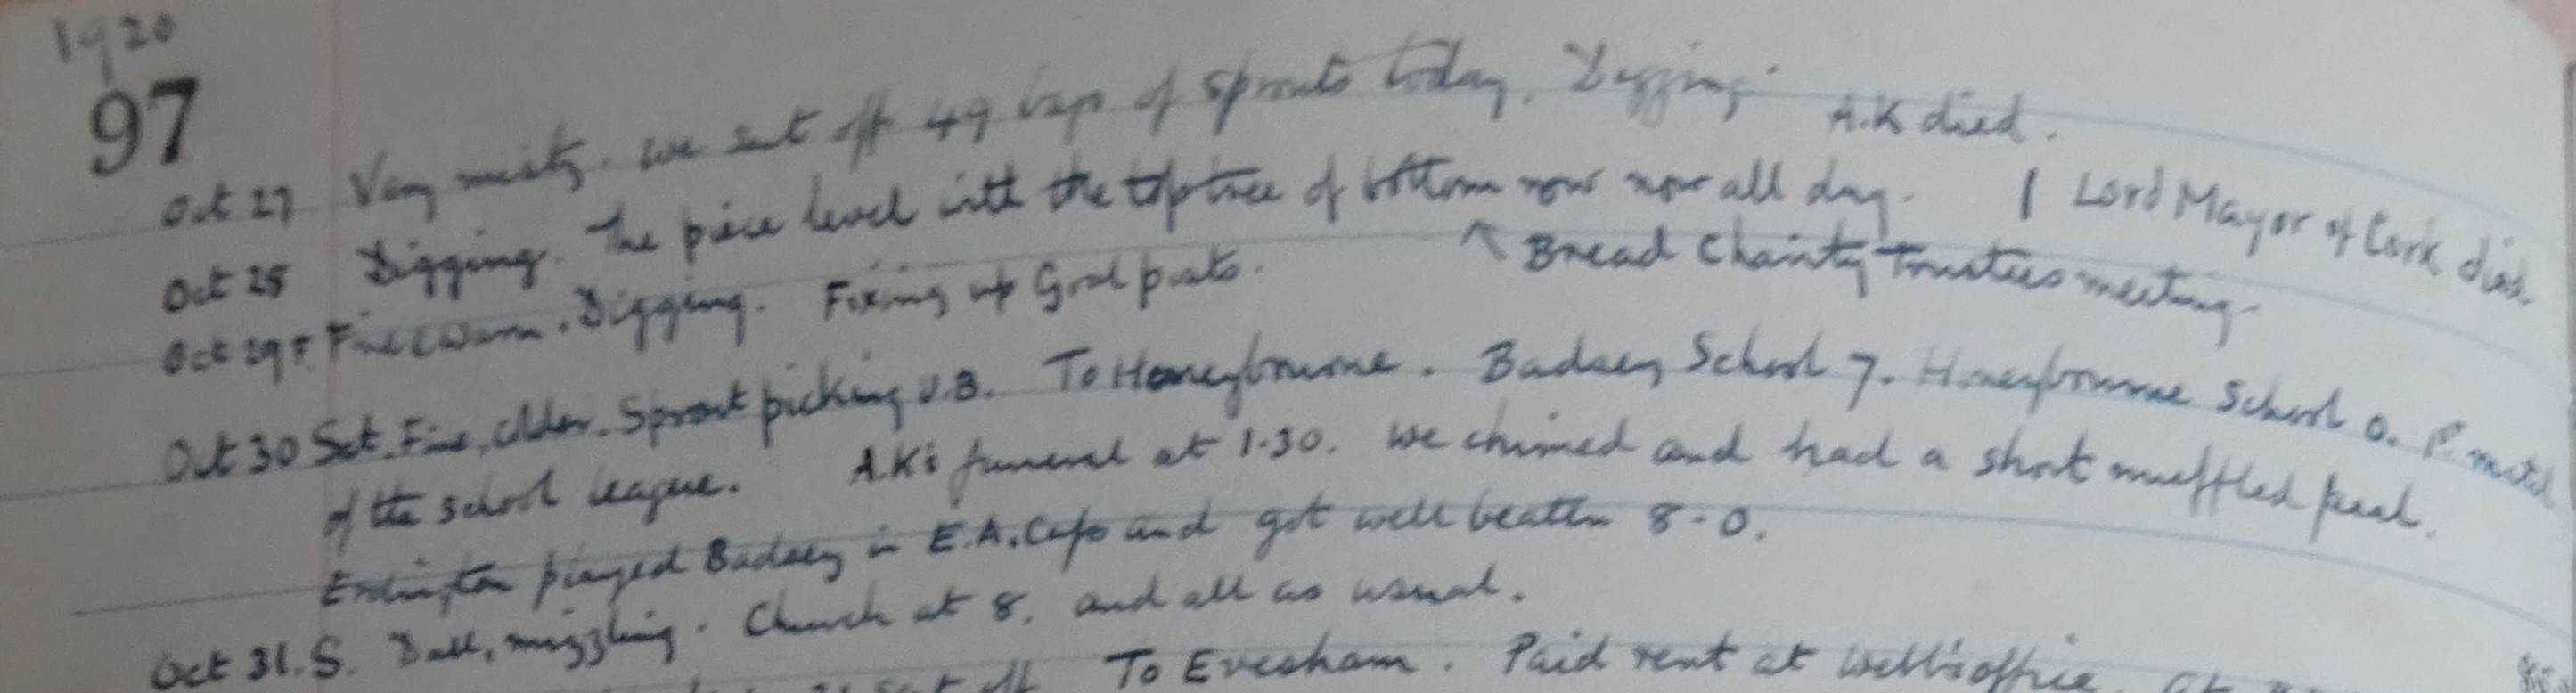 1920
97
Oct 27 Very misty. We sent off 49 bags of sprouts today. Digging. A.K died.
Oct 28 Digging. The piece level with the top tree of bottom row now all day. | Lord Mayor of Cork died
↖ Bread Charity Trustees meeting.
Oct 29 F. Fine & warm. Digging. Fixing up Goal posts.
Oct 30 Sat. Fine, colder. Sprout picking U.B. To Honeybourne. Badsey School 7. Honeybourne School 0. 1st match
of the school league. A.K's funeral at 1-30. We chimed and had a short muffled peal.
Erdington played Badsey in E.A. Cup and got well beaten 8-0.
Oct 31. S. Dull, mizzling. Church at 8. and all as usual.
sent off To Evesham. Paid rent at Webb's office.